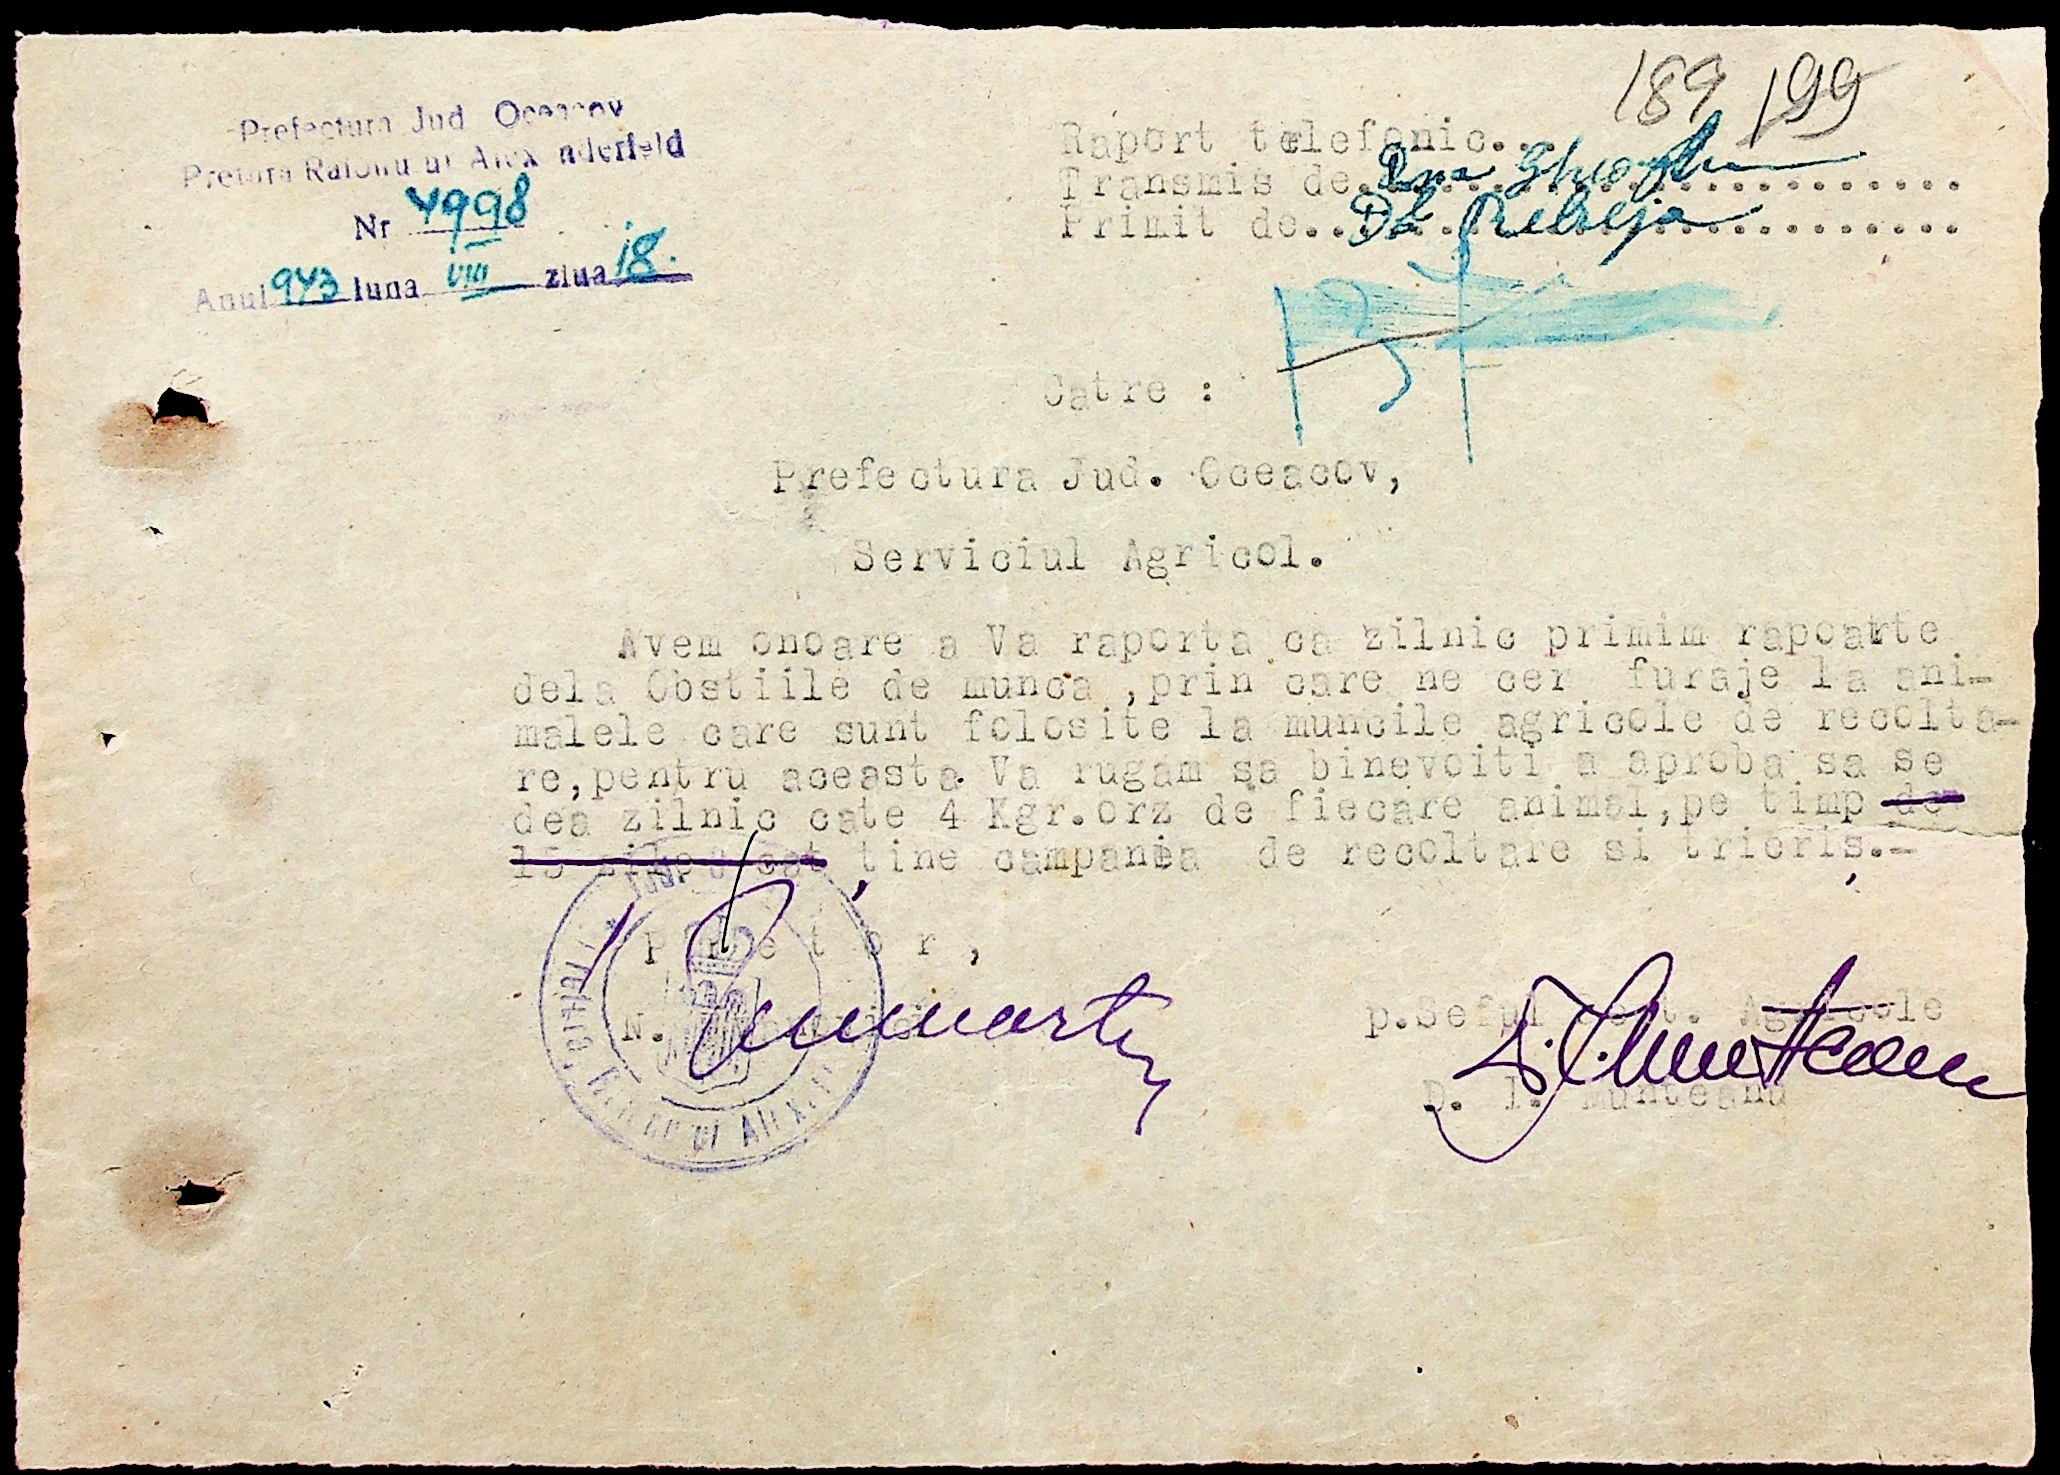 189 199
Prefectura Jud Oceacov
Pretura Raionului Alexanderfeld
Nr 4998
Anul 943 luna VIII ziua 18.
Raport telefonic...
Transmis de
Primit de
Catre :
Prefectura Jud. Oceacov,
Serviciul Agricol.
Avem onoare a Va raporta ca zilnic primim rapoarte
dela Obstiile de munca ,prin care ne cer furaje la ani-
malele care sunt folosite la muncile agricole de recolta-
re,pentru aceasta Va rugam sa binevoiti a aproba sa se
dea zilnic cate 4 Kgr.orz de fiecare animal,pe timp de
15 zile cat tine campania de recoltare si trieris.-
P r e t o r ,
N.
p.Seful Sect. Agricole
D. I. Munteanu
D. I. Munteanu